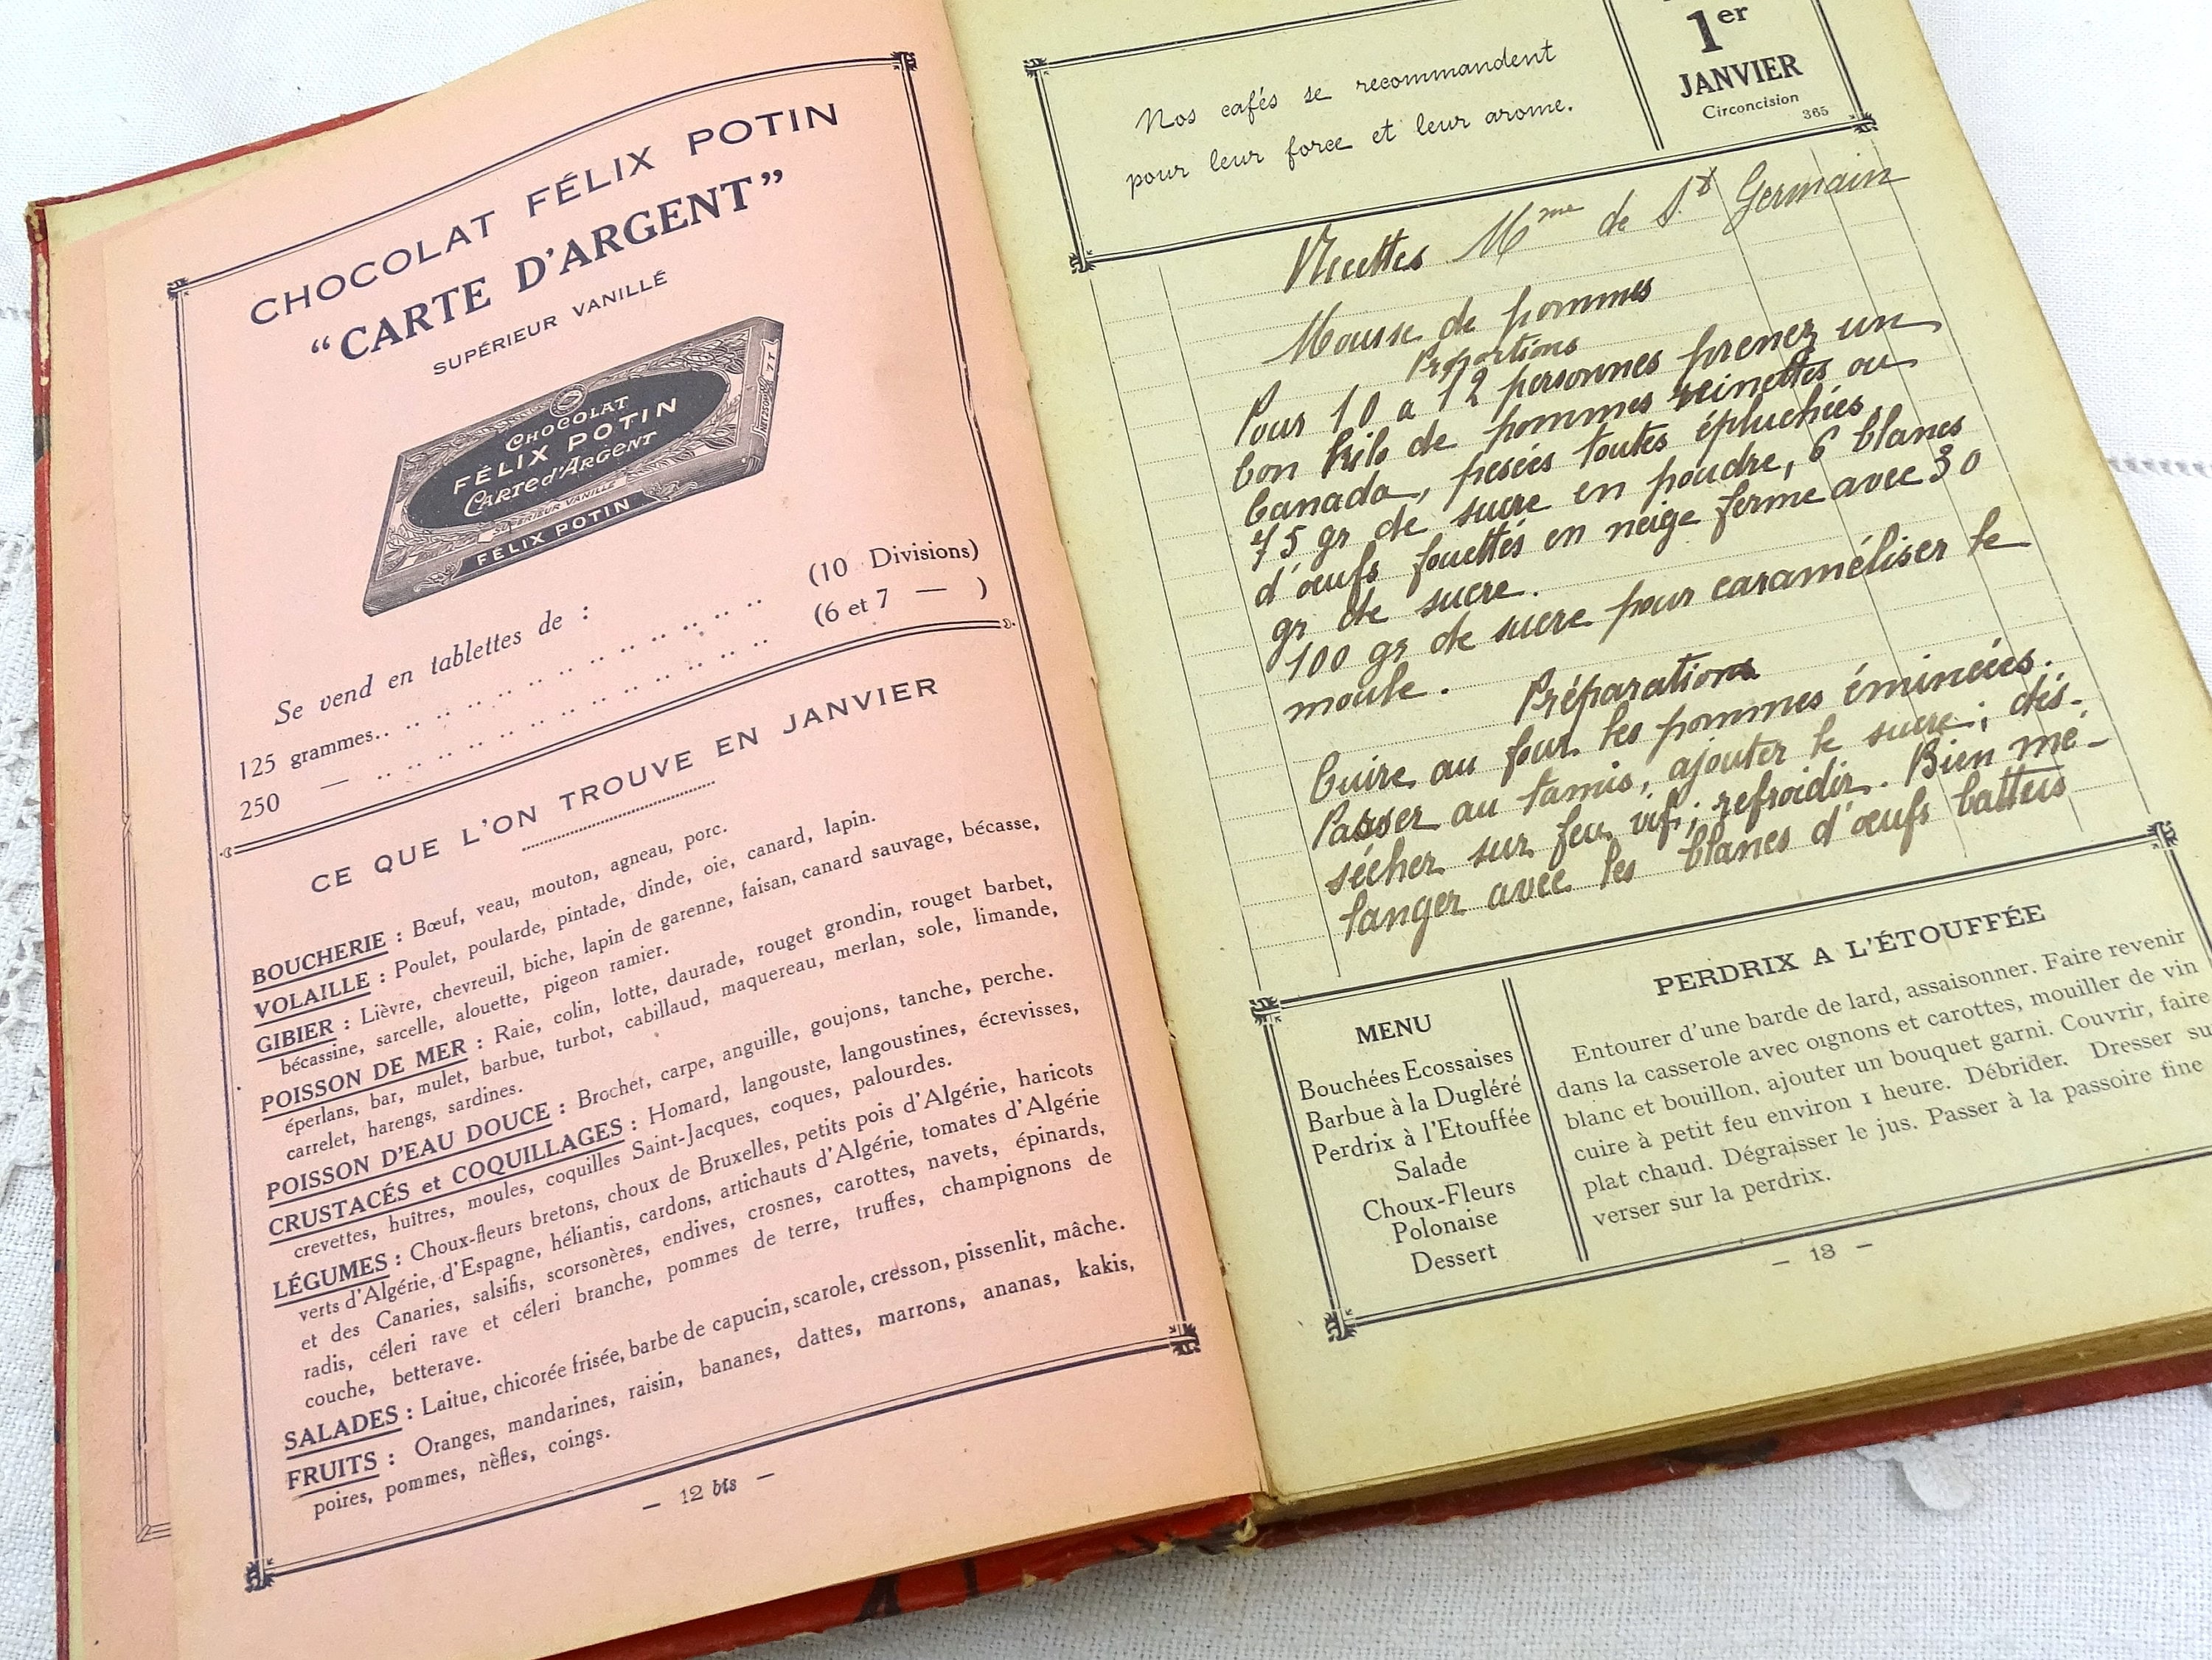 CHOCOLAT FÉLIX POTIN
“CARTE D'ARGENT”
SUPÉRIEUR VANILLÉ
CHOCOLAT
FÉLIX POTIN
CARTE d'ARGENT
SUPÉRIEUR VANILLÉ
FÉLIX POTIN
Se vend en tablettes de :
125 grammes.. .. .. .. .. .. .. .. .. .. (10 Divisions)
250 — .. .. .. .. .. .. .. .. .. .. (6 et 7 — )
CE QUE L'ON TROUVE EN JANVIER
BOUCHERIE : Bœuf, veau, mouton, agneau, porc.
VOLAILLE : Poulet, poularde, pintade, dinde, oie, canard, lapin.
GIBIER : Lièvre, chevreuil, biche, lapin de garenne, faisan, canard sauvage, bécasse,
bécassine, sarcelle, alouette, pigeon ramier.
POISSON DE MER : Raie, colin, lotte, daurade, rouget grondin, rouget barbet,
éperlans, bar, mulet, barbue, turbot, cabillaud, maquereau, merlan, sole, limande,
carrelet, harengs, sardines.
POISSON D'EAU DOUCE : Brochet, carpe, anguille, goujons, tanche, perche.
CRUSTACÉS et COQUILLAGES : Homard, langouste, langoustines, écrevisses,
crevettes, huîtres, moules, coquilles Saint-Jacques, coques, palourdes.
LÉGUMES : Choux-fleurs bretons, choux de Bruxelles, petits pois d'Algérie, haricots
verts d'Algérie, d'Espagne, héliantis, cardons, artichauts d'Algérie, tomates d'Algérie
et des Canaries, salsifis, scorsonères, endives, crosnes, carottes, navets, épinards,
radis, céleri rave et céleri branche, pommes de terre, truffes, champignons de
couche, betterave.
SALADES : Laitue, chicorée frisée, barbe de capucin, scarole, cresson, pissenlit, mâche.
FRUITS : Oranges, mandarines, raisin, bananes, dattes, marrons, ananas, kakis,
poires, pommes, nèfles, coings.
— 12 bis —
Nos cafés se recommandent
pour leur force et leur arome.
1er
JANVIER
Circoncision
365
Recettes Mme de St Germain
Mousse de pommes
Proportions
Pour 10 a 12 personnes prenez un
bon kilo de pommes reinettes ou
Canada, pesées toutes épluchées,
75 gr de sucre en poudre, 6 blancs
d'œufs fouettés en neige ferme avec 30
gr de sucre.
100 gr de sucre pour caraméliser le
moule.
Préparations
Cuire au four les pommes émincées.
Passer au tamis, ajouter le sucre; dés-
sécher sur feu vif; refroidir. Bien mé-
langer avec les blancs d'œufs battus
MENU
Bouchées Ecossaises
Barbue à la Dugléré
Perdrix à l'Etouffée
Salade
Choux-Fleurs
Polonaise
Dessert
PERDRIX A L'ÉTOUFFÉE
Entourer d'une barde de lard, assaisonner. Faire revenir
dans la casserole avec oignons et carottes, mouiller de vin
blanc et bouillon, ajouter un bouquet garni. Couvrir, faire
cuire à petit feu environ 1 heure. Débrider. Dresser su
plat chaud. Dégraisser le jus. Passer à la passoire fine
verser sur la perdrix.
— 13 —